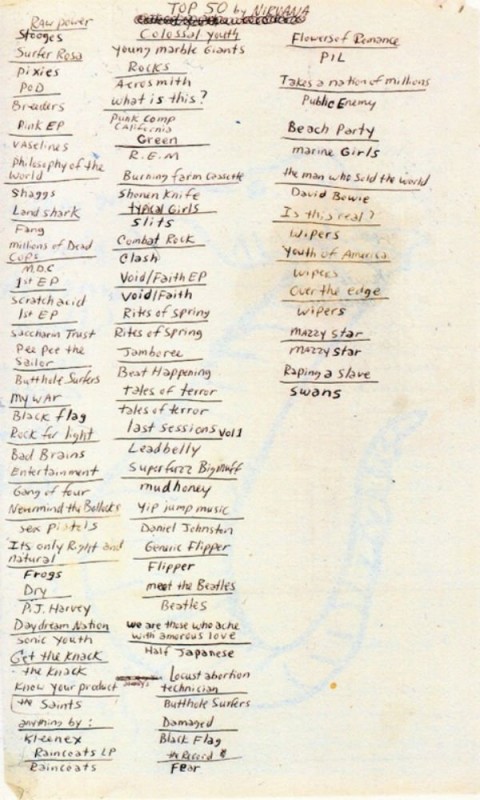 TOP 50 by NIRVANA
Raw power
Stooges
Surfer Rosa
Pixies
PoD
Breeders
Pink EP
vaselines
Philosophy of the
World
Shaggs
Land shark
Fang
millions of Dead
Cops
M.D.C
1st EP
Scratch acid
1st EP
Saccharin Trust
Pee pee the
Sailor
Butthole Surfers
My WAr
Black flag
Rock for light
Bad Brains
Entertainment
Gang of four
Nevermind the Bollocks
sex pistols
Its only Right and
natural
Frogs
Dry
P.J. Harvey
Daydream Nation
Sonic Youth
Get the Knack
the Knack
Know your product
the Saints
anything by:
Kleenex
Raincoats LP
Raincoats
Colossal youth
young marble Giants
Rocks
Aerosmith
What is this?
Punk Comp
California
Green
R.E.M
Burning farm cassette
Shonen Knife
typical Girls
slits
Combat Rock
Clash
Void/Faith EP
Void/Faith
Rites of Spring
Rites of Spring
Jamboree
Beat Happening
tales of terror
tales of terror
last sessions vol 1
Leadbelly
Superfuzz Bigmuff
mudhoney
Yip jump music
Daniel Johnston
Generic Flipper
Flipper
meet the Beatles
Beatles
we are those who ache
with amorous love
Half Japanese
Locust abortion
technician
Butthole Surfers
Damaged
Black Flag
the Record
Fear
Flowers of Romance
PIL
Takes a nation of millions
Public Enemy
Beach Party
marine Girls
the man who sold the world
David Bowie
Is this real?
Wipers
Youth of America
Wipers
Over the edge
Wipers
mazzy star
mazzy star
Raping a Slave
Swans